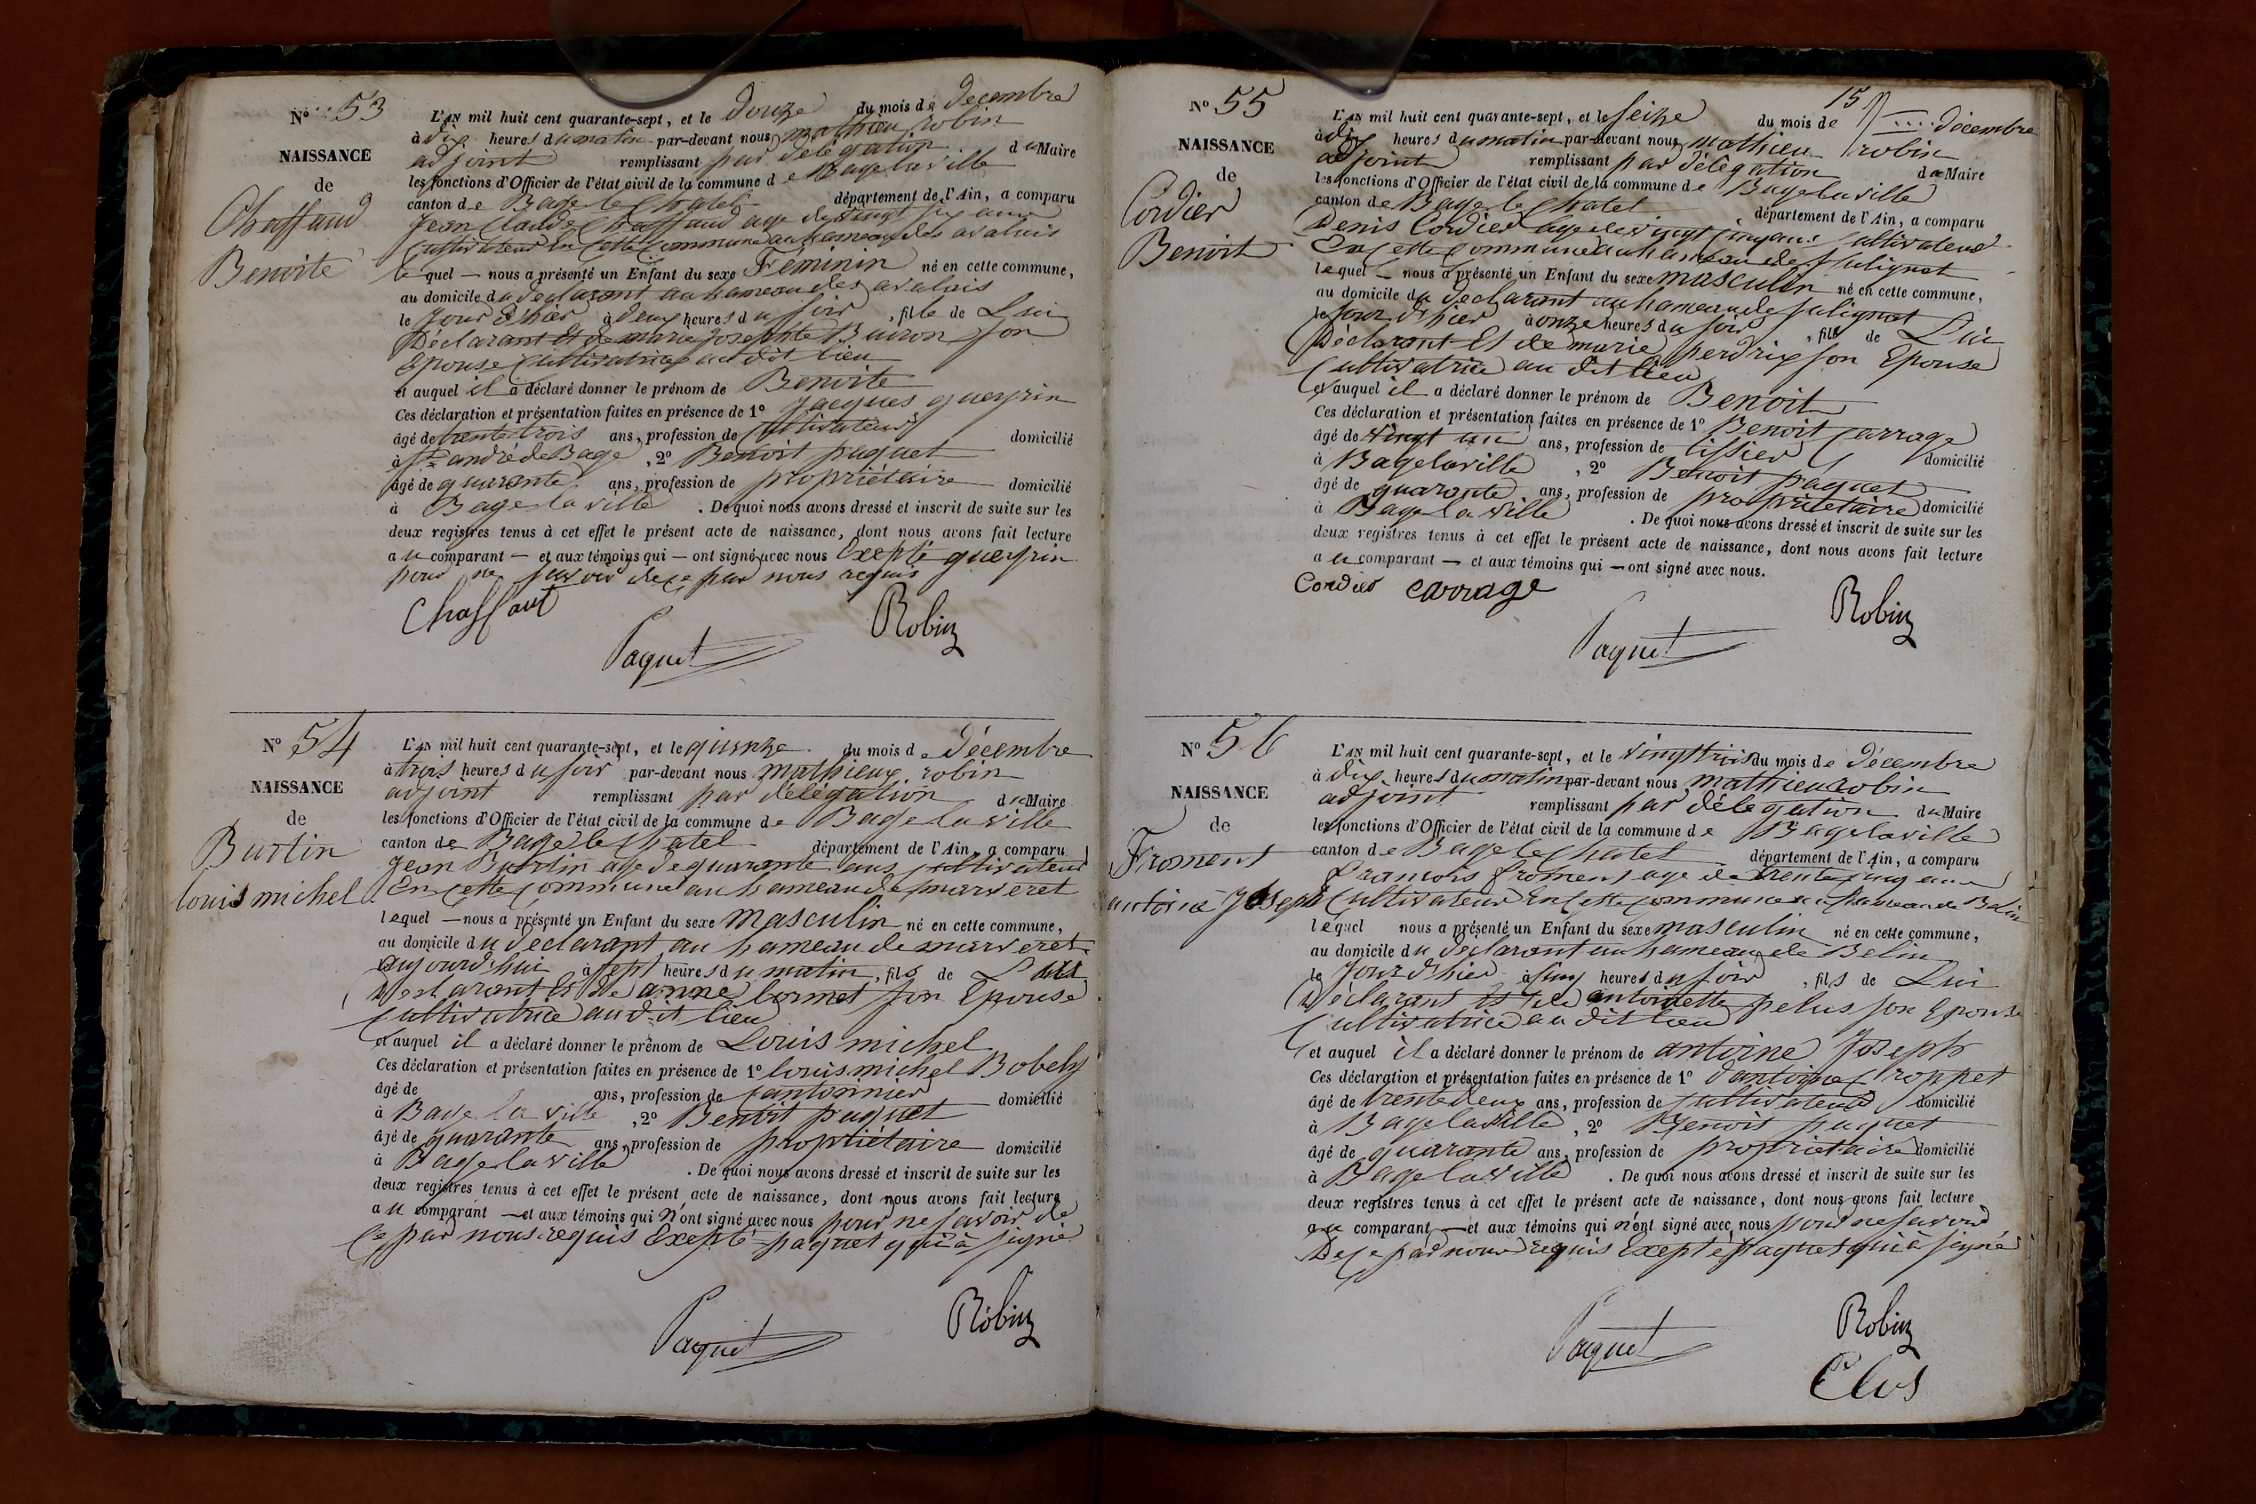 N° 53
NAISSANCE
de
Chaffaud
Benoite
L'AN mil huit cent quarante-sept, et le douze du mois de décembre
à dix heures du matin par-devant nous mathieu robin
adjoint remplissant par délégation du Maire
les fonctions d'Officier de l'état civil de la commune de Bage la ville
canton de Bage le Chatel département de l'Ain, a comparu
Jean Claude Chaffaud age de vingt six ans
Cultivateur En Cette Commune au hameau des avalois
le quel — nous a présenté un Enfant du sexe Féminin né en cette commune,
au domicile du declarant au hameau des avalois
le Jour d'hier à deux heures du soir, fille de Lui
Déclarant Et de marie Josephte Buiron son
Epouse Cultivatrice au dit lieu
et auquel il a déclaré donner le prénom de Benoite
Ces déclaration et présentation faites en présence de 1° Jacques gueyrin
âgé de trente trois ans, profession de Cultivateur domicilié
à St andré de Bage, 2° Benoit paquet
âgé de quarante ans, profession de propriétaire domicilié
à Bage la ville. De quoi nous avons dressé et inscrit de suite sur les
deux registres tenus à cet effet le présent acte de naissance, dont nous avons fait lecture
au comparant — et aux témoins qui — ont signé avec nous Exepté gueyrin
pour ne savoir de ce par nous requis
Chaffaut
Paquet
Robin
N° 54
NAISSANCE
de
Burtin
louis michel
L'AN mil huit cent quarante-sept, et le quinze du mois de décembre
à trois heures du soir par-devant nous mathieux robin
adjoint remplissant par délégation du Maire
les fonctions d'Officier de l'état civil de la commune de Bage la ville
canton de Bage le Chatel département de l'Ain, a comparu
Jean Burtin age de quarante ans Cultivateur
En Cette Commune au hameau de marveret
lequel — nous a présenté un Enfant du sexe masculin né en cette commune,
au domicile du declarant au hameau de marveret
aujourd'hui à sept heures du matin, fils de Lui
Declarant Et de anne bornet son Epouse
Cultivatrice au dit lieu
et auquel il a déclaré donner le prénom de Louis michel
Ces déclaration et présentation faites en présence de 1° louis michel Bobely
âgé de ans, profession de Cantonnier domicilié
à Bage la ville, 2° Benoit paquet
âgé de quarante ans, profession de propriétaire domicilié
à Bage la ville. De quoi nous avons dressé et inscrit de suite sur les
deux registres tenus à cet effet le présent acte de naissance, dont nous avons fait lecture
au comparant — et aux témoins qui n'ont signé avec nous pour ne savoir de
Ce par nous requis Exepté paquet qui à signé
Paquet
Robin
N° 55
NAISSANCE
de
Cordier
Benoit
15
L'AN mil huit cent quarante-sept, et le seize du mois de décembre
à dix heures du matin par-devant nous mathieu robin
adjoint remplissant par délégation du Maire
les fonctions d'Officier de l'état civil de la commune de Bage la ville
canton de Bage le Chatel département de l'Ain, a comparu
Denis Cordier age de vingt cinq ans Cultivateur
En Cette Commune au hameau de Julignat
lequel — nous a présenté un Enfant du sexe masculin né en cette commune,
au domicile du declarant au hameau de Julignat
le Jour d'hier à onze heures du soir, fils de Lui
Déclarant Et de marie perdrix son Epouse
Cultivatrice au dit lieu
et auquel il a déclaré donner le prénom de Benoit
Ces déclaration et présentation faites en présence de 1° Benoit Carrage
âgé de vingt un ans, profession de tissier domicilié
à Bage la ville, 2° Benoit paquet
âgé de quarante ans, profession de propriétaire domicilié
à Bage la ville. De quoi nous avons dressé et inscrit de suite sur les
deux registres tenus à cet effet le présent acte de naissance, dont nous avons fait lecture
au comparant — et aux témoins qui — ont signé avec nous.
Cordier carrage
Paquet
Robin
N° 56
NAISSANCE
de
Froment
antoine Joseph
L'AN mil huit cent quarante-sept, et le vingt trois du mois de décembre
à dix heures du matin par-devant nous mathieu robin
adjoint remplissant par délégation du Maire
les fonctions d'Officier de l'état civil de la commune de Bage la ville
canton de Bage le Chatel département de l'Ain, a comparu
Francois froment age de trente cinq ans
Cultivateur En Cette commune au hameau de Belin
lequel nous a présenté un Enfant du sexe masculin né en cette commune,
au domicile du declarant au hameau de Belin
le Jour d'hier à cinq heures du soir, fils de Lui
Déclarant Et de antoinette pelus son Epouse
Cultivatrice au dit lieu
et auquel il a déclaré donner le prénom de antoine Joseph
Ces déclaration et présentation faites en présence de 1° antoine Croppet
âgé de trente deux ans, profession de Cultivateur domicilié
à Bage la ville, 2° Benoit paquet
âgé de quarante ans, profession de propriétaire domicilié
à Bage la ville. De quoi nous avons dressé et inscrit de suite sur les
deux registres tenus à cet effet le présent acte de naissance, dont nous avons fait lecture
au comparant — et aux témoins qui n'ont signé avec nous pour ne savoir
De Ce par nous requis Exepté paquet qui à signé
Paquet
Robin
Clos